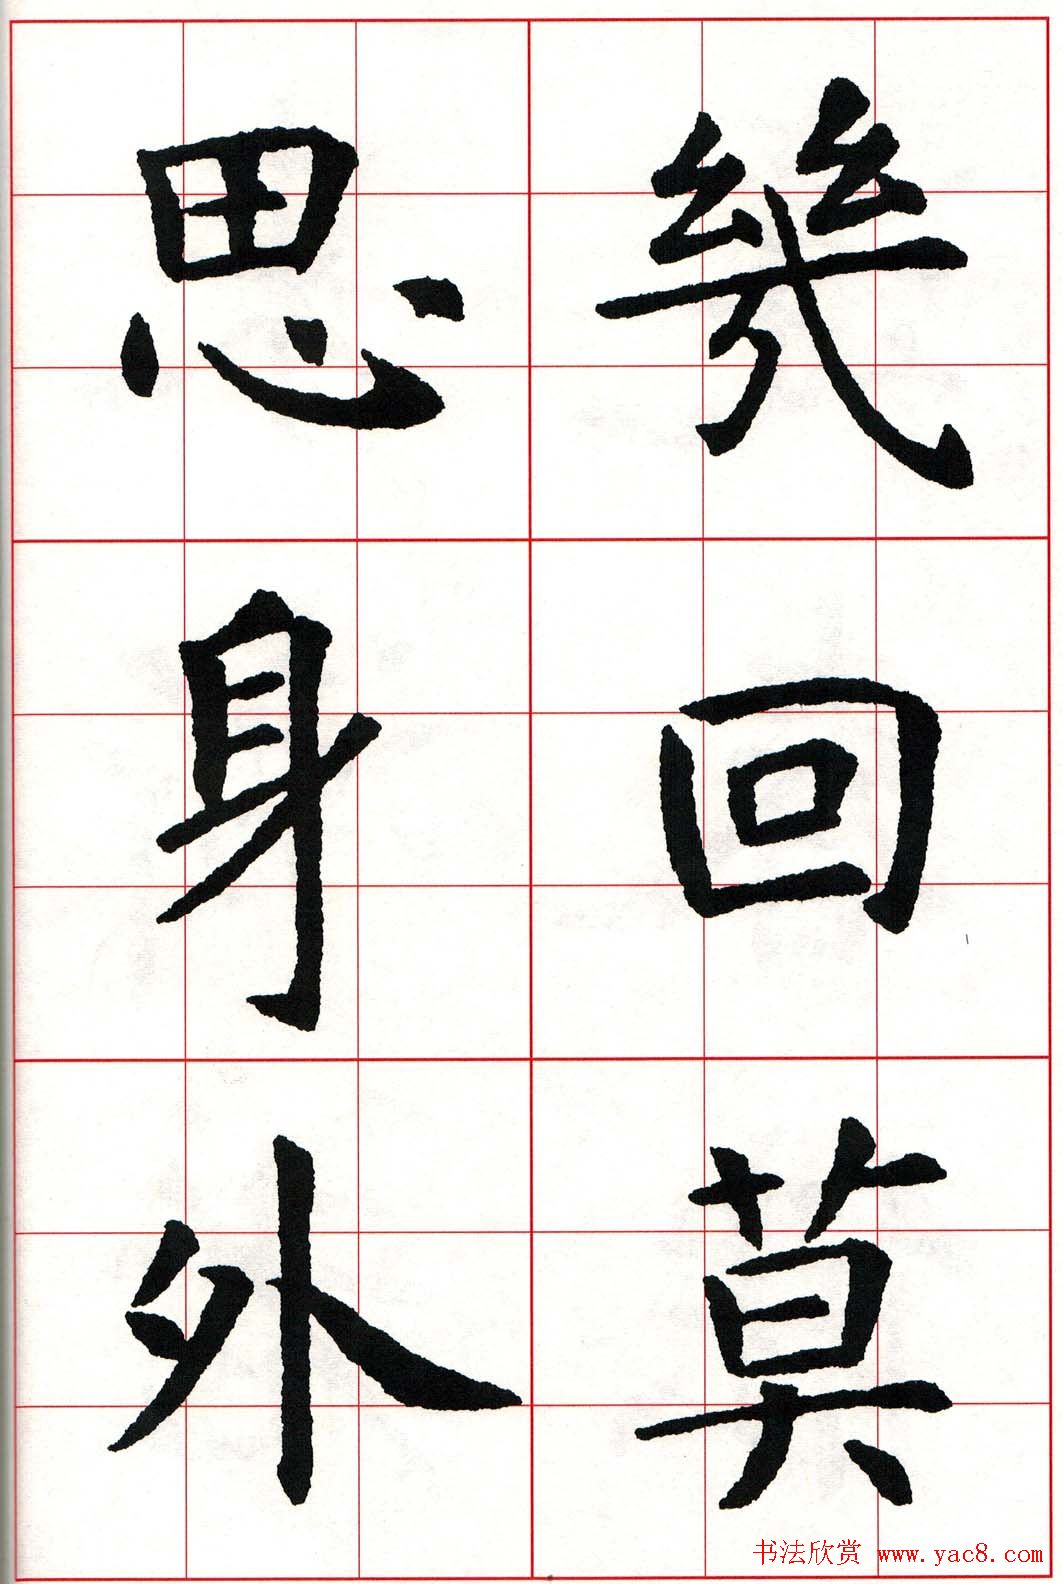 幾回莫
思身外
书法欣赏 www.yac8.com